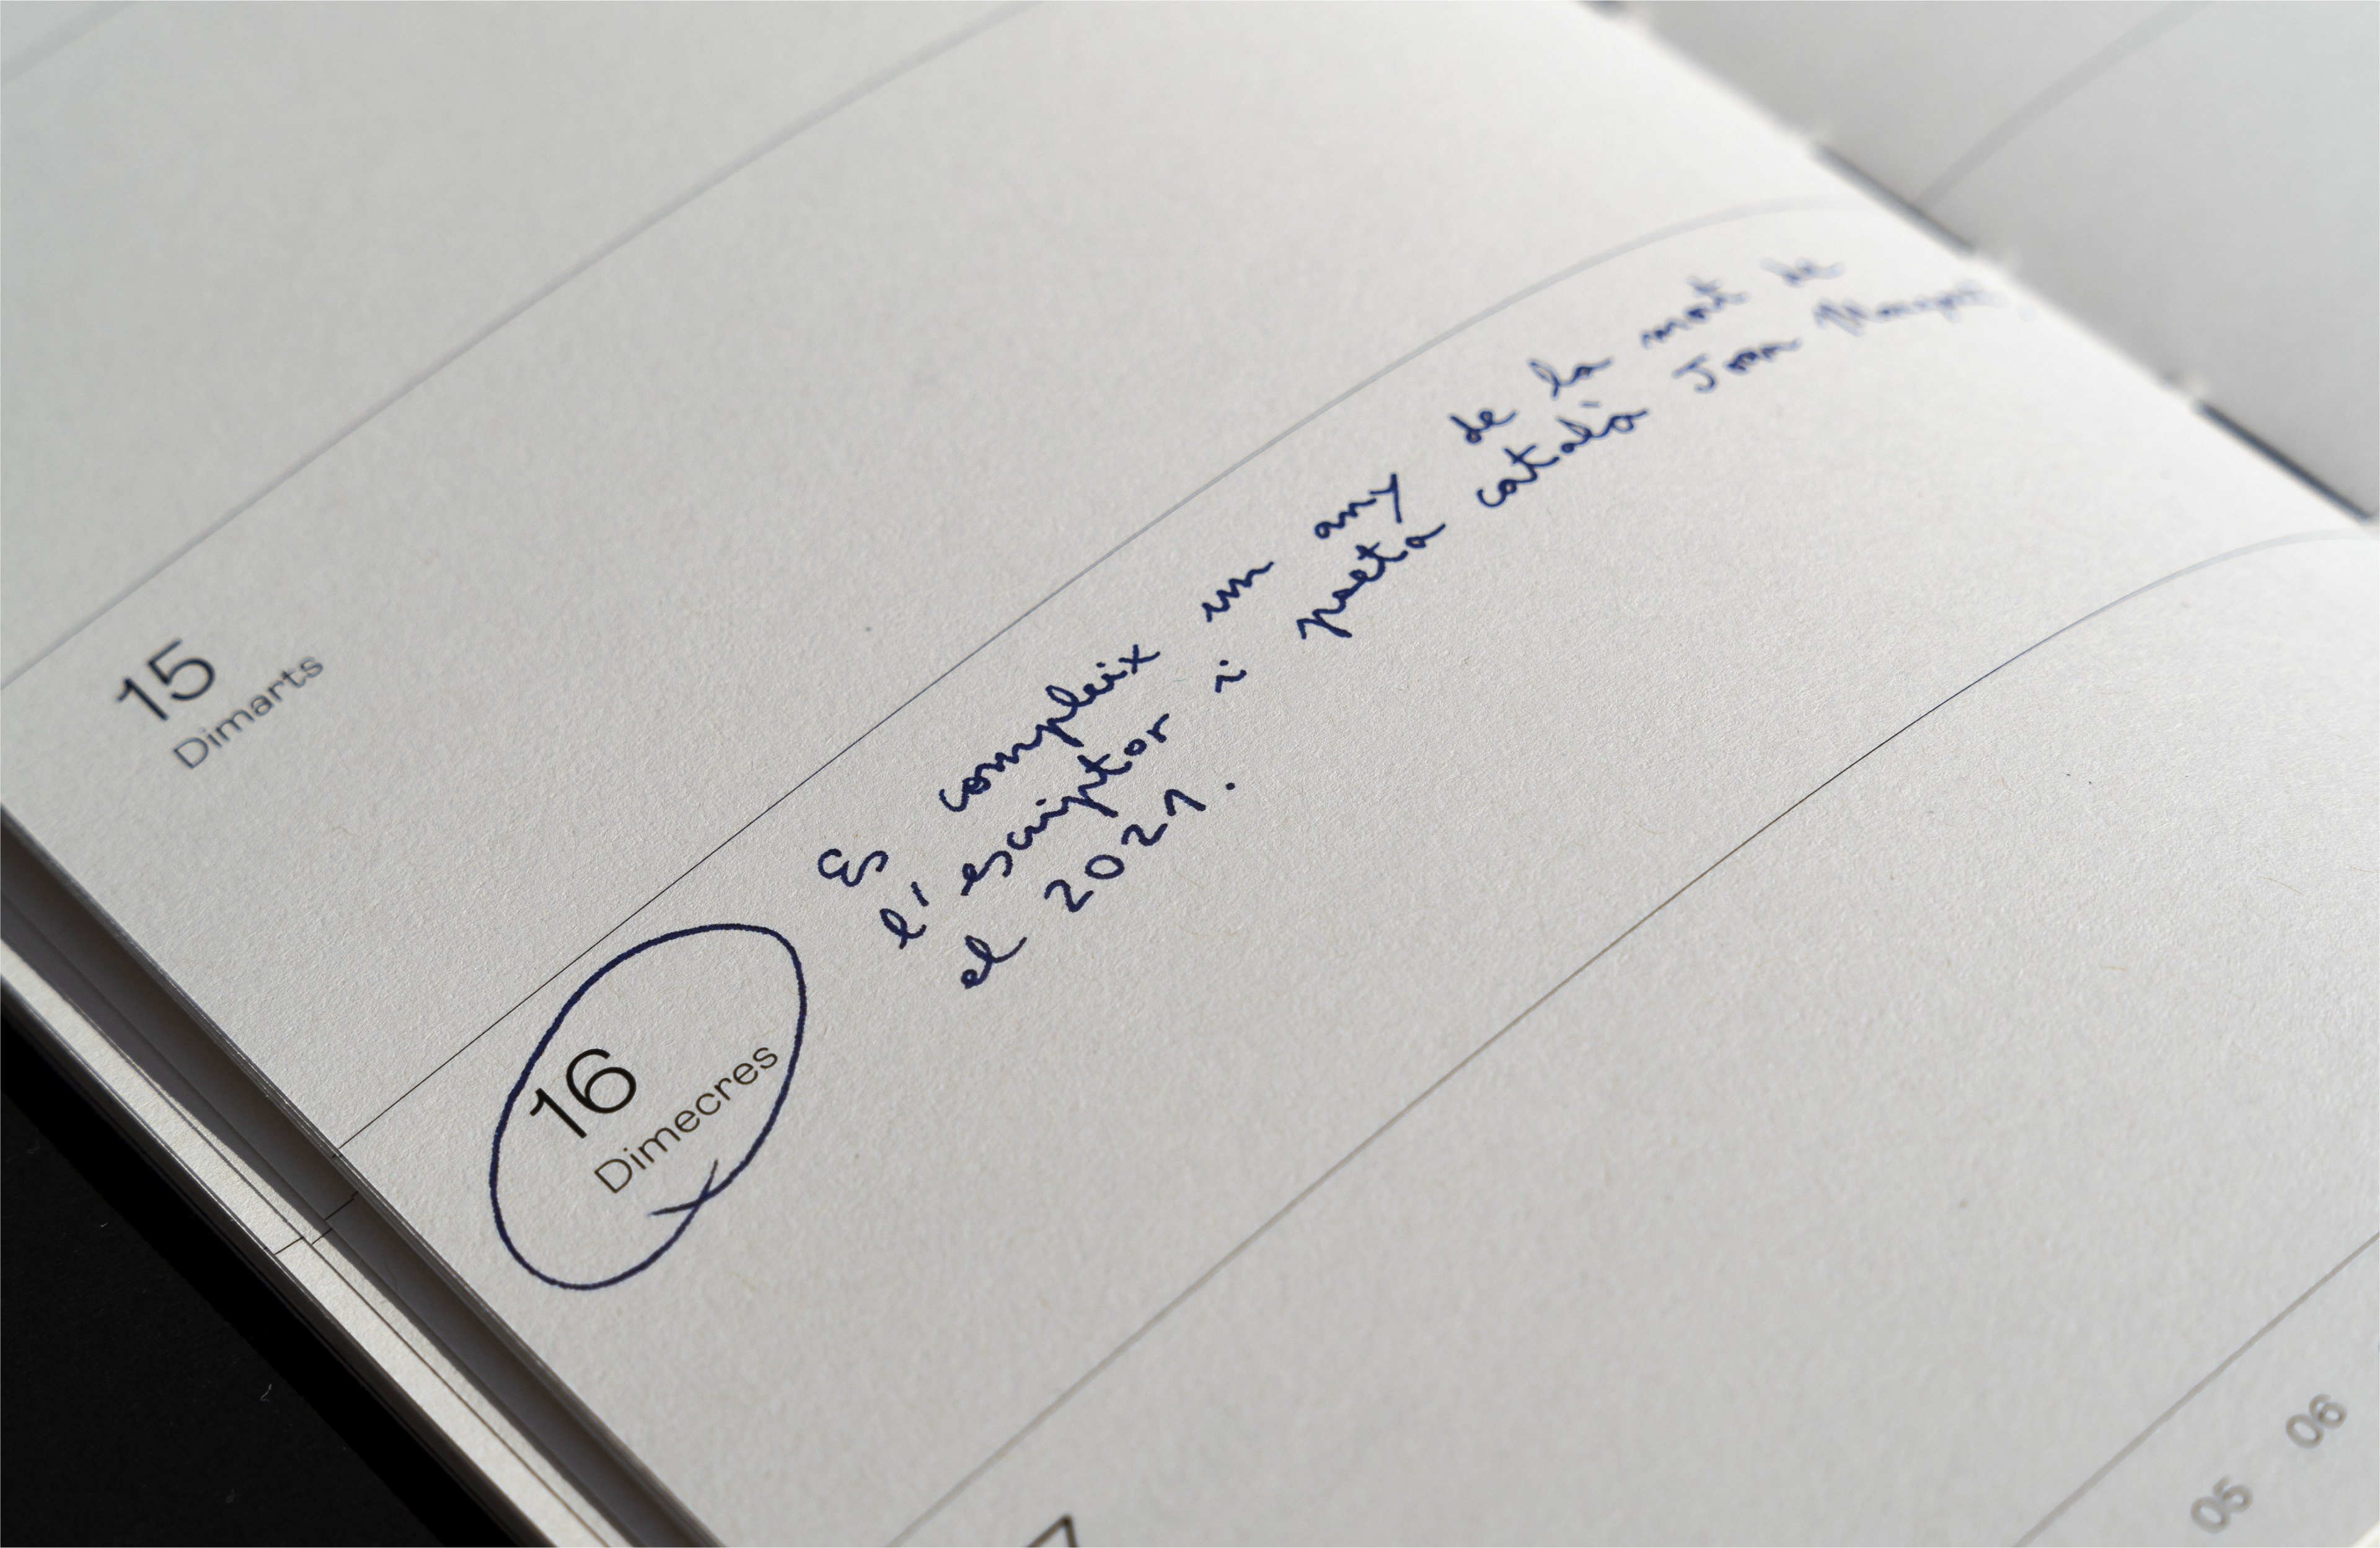 15
Dimarts
16
Dimecres
Es compleix un any de la mort de
l'escriptor i poeta català Joan Margarit,
el 2021.
7
05 06